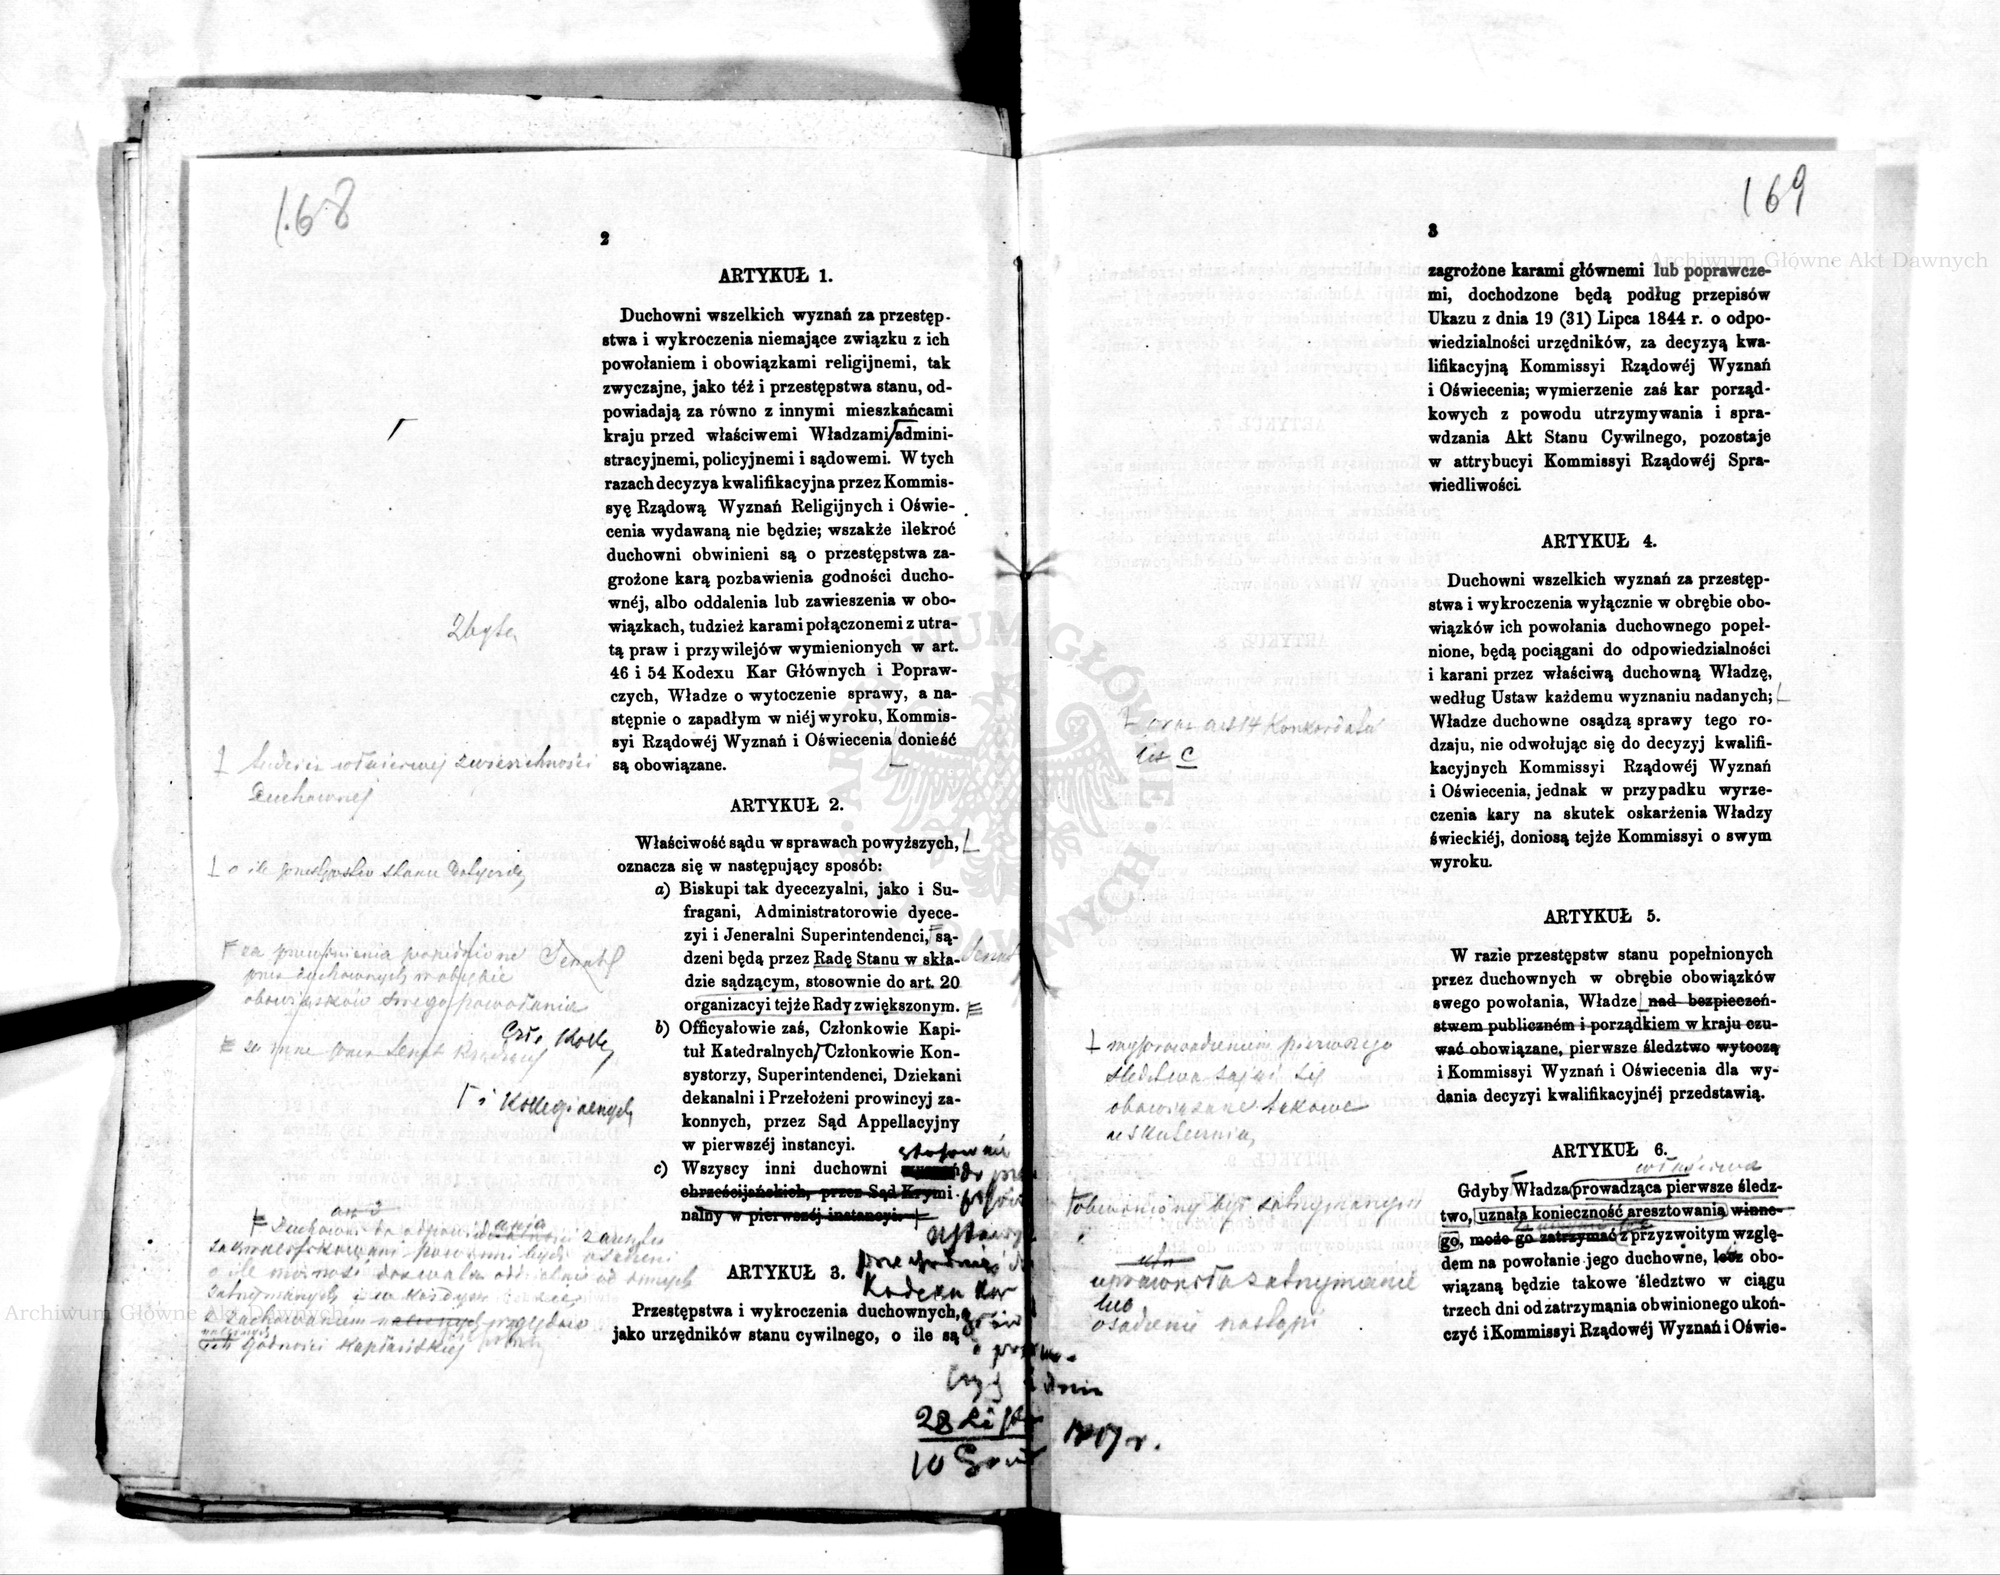 168
2
ARTYKUŁ 1.
Duchowni wszelkich wyznań za przestęp-
stwa i wykroczenia niemające związku z ich
powołaniem i obowiązkami religijnemi, tak
zwyczajne, jako téż i przestępstwa stanu, od-
powiadają za równo z innymi mieszkańcami
kraju przed właściwemi Władzami admini-
stracyjnemi, policyjnemi i sądowemi. W tych
razach decyzya kwalifikacyjna przez Kommis-
syę Rządową Wyznań Religijnych i Oświe-
cenia wydawaną nie będzie; wszakże ilekroć
duchowni obwinieni są o przestępstwa za-
grożone karą pozbawienia godności ducho-
wnéj, albo oddalenia lub zawieszenia w obo-
wiązkach, tudzież karami połączonemi z utra-
tą praw i przywilejów wymienionych w art.
46 i 54 Kodexu Kar Głównych i Popraw-
czych, Władze o wytoczenie sprawy, a na-
stępnie o zapadłym w niéj wyroku, Kommis-
syi Rządowéj Wyznań i Oświecenia donieść
są obowiązane.
właściwej zwierzchności
Duchownej
ARTYKUŁ 2.
Właściwość sądu w sprawach powyższych,
oznacza się w następujący sposób:
a) Biskupi tak dyecezyalni, jako i Su-
fragani, Administratorowie dyece-
zyi i Jeneralni Superintendenci, są-
dzeni będą przez Radę Stanu w skła-
dzie sądzącym, stosownie do art. 20
organizacyi tejże Rady zwiększonym.
b) Officyałowie zaś, Członkowie Kapi-
tuł Katedralnych, Członkowie Kon-
systorzy, Superintendenci, Dziekani
dekanalni i Przełożeni prowincyj za-
konnych, przez Sąd Appellacyjny
w pierwszéj instancyi.
c) Wszyscy inni duchowni
chrześcijańskich, przez Sąd Krymi-
nalny w pierwszéj instancyi.
o ile stanu
przez duchownych w obrębie
obowiązków swego powołania
i Kollegialnych
ARTYKUŁ 3.
Przestępstwa i wykroczenia duchownych,
jako urzędników stanu cywilnego, o ile są
10
169
3
zagrożone karami głównemi lub poprawcze-
mi, dochodzone będą podług przepisów
Ukazu z dnia 19 (31) Lipca 1844 r. o odpo-
wiedzialności urzędników, za decyzyą kwa-
lifikacyjną Kommissyi Rządowéj Wyznań
i Oświecenia; wymierzenie zaś kar porząd-
kowych z powodu utrzymywania i spra-
wdzania Akt Stanu Cywilnego, pozostaje
w attrybucyi Kommissyi Rządowéj Spra-
wiedliwości.
ARTYKUŁ 4.
Duchowni wszelkich wyznań za przestęp-
stwa i wykroczenia wyłącznie w obrębie obo-
wiązków ich powołania duchownego popeł-
nione, będą pociągani do odpowiedzialności
i karani przez właściwą duchowną Władzę,
według Ustaw każdemu wyznaniu nadanych;
Władze duchowne osądzą sprawy tego ro-
dzaju, nie odwołując się do decyzyj kwalifi-
kacyjnych Kommissyi Rządowéj Wyznań
i Oświecenia, jednak w przypadku wyrze-
czenia kary na skutek oskarżenia Władzy
świeckiéj, doniosą tejże Kommissyi o swym
wyroku.
oraz art 14 Konkordatu
lit C
ARTYKUŁ 5.
W razie przestępstw stanu popełnionych
przez duchownych w obrębie obowiązków
swego powołania, Władze nad bezpieczeń-
stwem publiczném i porządkiem w kraju czu-
wać obowiązane, pierwsze śledztwo wytoczą
i Kommissyi Wyznań i Oświecenia dla wy-
dania decyzyi kwalifikacyjnéj przedstawią.
wyprowadzeniem pierwszego
śledztwa zająć się
obowiązane takowe
uskutecznią
ARTYKUŁ 6.
właściwa
Gdyby Władza prowadząca pierwsze śledz-
two, uznała konieczność aresztowania winne-
go, może go zatrzymać z przyzwoitym wzglę-
dem na powołanie jego duchowne, lecz obo-
wiązaną będzie takowe śledztwo w ciągu
trzech dni od zatrzymania obwinionego ukoń-
czyć i Kommissyi Rządowéj Wyznań i Oświe-
obwiniony był zatrzymanym
zatrzymanie
lub
osadzenie nastąpi
Archiwum Główne Akt Dawnych
Archiwum Główne Akt Dawnych
ARCHIWUM GŁÓWNE AKT DAWNYCH